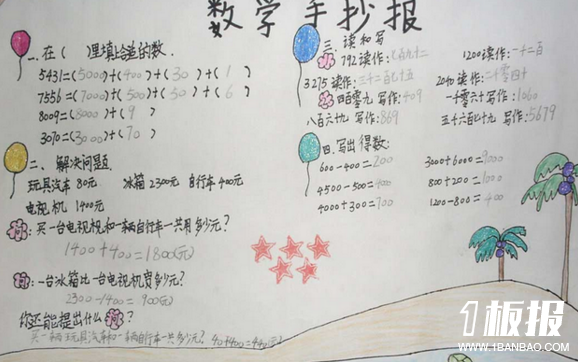 数学手抄报
一.在( )里填上合适的数.
5431=(5000)+(400)+(30)+(1)
7556=(7000)+(500)+(50)+(6)
8009=(8000)+(9)
3070=(3000)+(70)
二、解决问题
玩具汽车 80元 冰箱 2300元 自行车 400元
电视机 1400元
问:买一台电视机和一辆自行车一共用多少元?
1400+400=1800(元)
问:一台冰箱比一台电视机贵多少元?
2300-1400=900(元)
你还能提出什么问?
买一辆玩具汽车和一辆自行车一共多少元?
三.读和写
792读作:七百九十二 1200读作:一千二百
3275读作:三千二百七十五 2040读作:二千零四十
四百零九 写作:409 一千零六十 写作:1060
八百六十九 写作:869 五千六百七十九 写作:5679
四.写出得数:
600-400=200 3000+6000=9000
4500-500=4000 800+200=1000
4000+300=700 1200-800=400
1板报
WWW.1BANBAO.COM